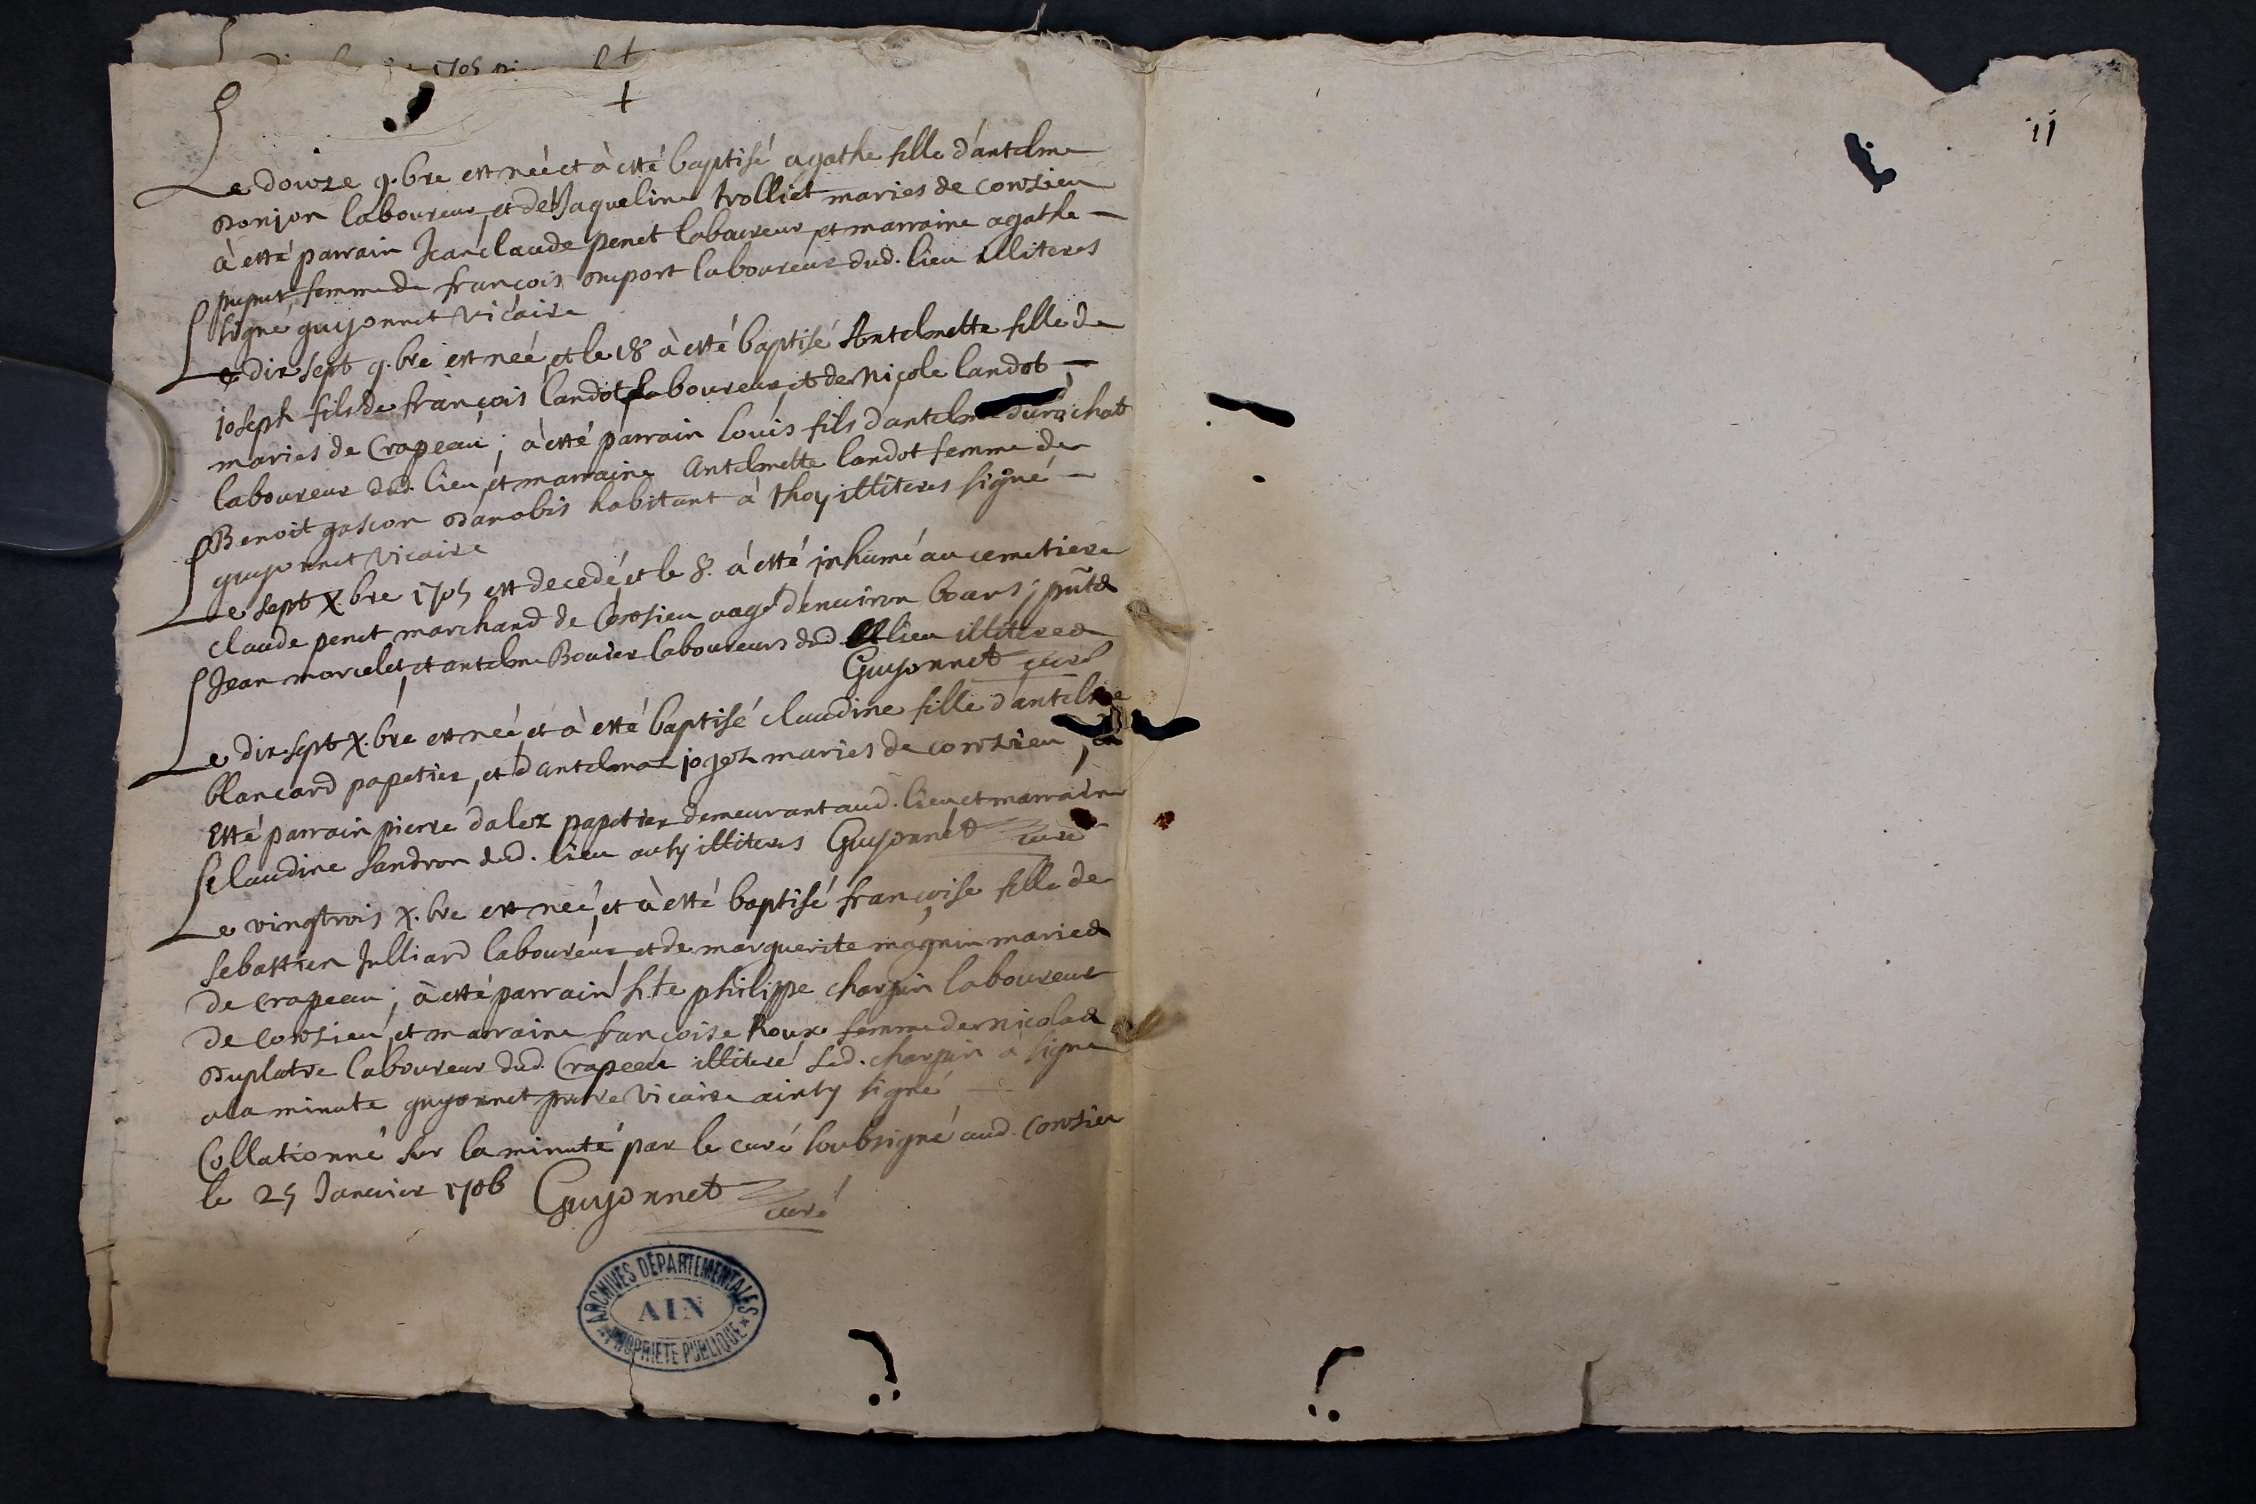 11
Le douze 9.bre est neé et à esté baptisé agathe fille d'antelme
donjon laboureur, et de Jaqueline trolliet maries de conzieu
à esté parrain Jean claude penet laboureur, et marraine agathe
femme de françois duport laboureur dud. lieu illiteres
signé guyonnet vicaire
Le dix sept 9.bre est neé, et le 18 à esté baptisé Antelmette fille de
joseph fils de françois landot laboureur, et de Nicole landot
maries de Crapeau; à esté parrain louis fils d'antelme
laboureur dud. lieu, et marraine Antelmette landot femme de
Benoit gascon habitant à thoy illiteres signé
guyonnet vicaire
Le sept X.bre 1705 est decedé, et le 8. à esté inhumé au cemetiere
claude penet marchand de Conzieu aagé d'environ 60 ans; pñts
Jean morcelet, et antelme Bouier laboureurs dud. lieu illiteres
Guyonnet curé
Le dix sept X.bre est neé, et à esté baptisé claudine fille d'antelme
blancard papetier, et d'antelma maries de conzieu, a
Esté parrain pierre dalex papetier demeurant aud. lieu et marraine
claudine sandron dud. lieu aussy illiteres Guyonnet curé
Le vingtrois X.bre est neé, et à esté baptisé françoise fille de
sebastien Julliard laboureur, et de marguerite magnin maries
de crapeau; à esté parrain h.te philippe charpin laboureur
de Conzieu, et marraine françoise Roux femme de nicolas
duplatre laboureur dud. Crapeau illiteré led. charpin à signe
a la minute guyonnet vicaire ainsy signé
Collationné sur la minute par le curé soubsigné aud. Conzieu
le 25 Janvier 1706 Guyonnet curé
ARCHIVES DÉPARTEMENTALES
AIN
PROPRIETE PUBLIQUE